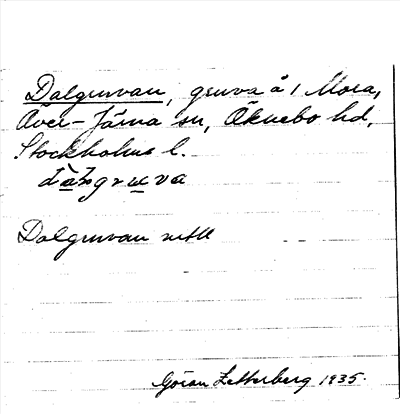 Dalgruvan, gruva å 1 Mora,
Över-Järna sn, Öknebo hd,
Stockholms l.
dàlgruva
Dalgruvan
Göran Zetterberg 1935.